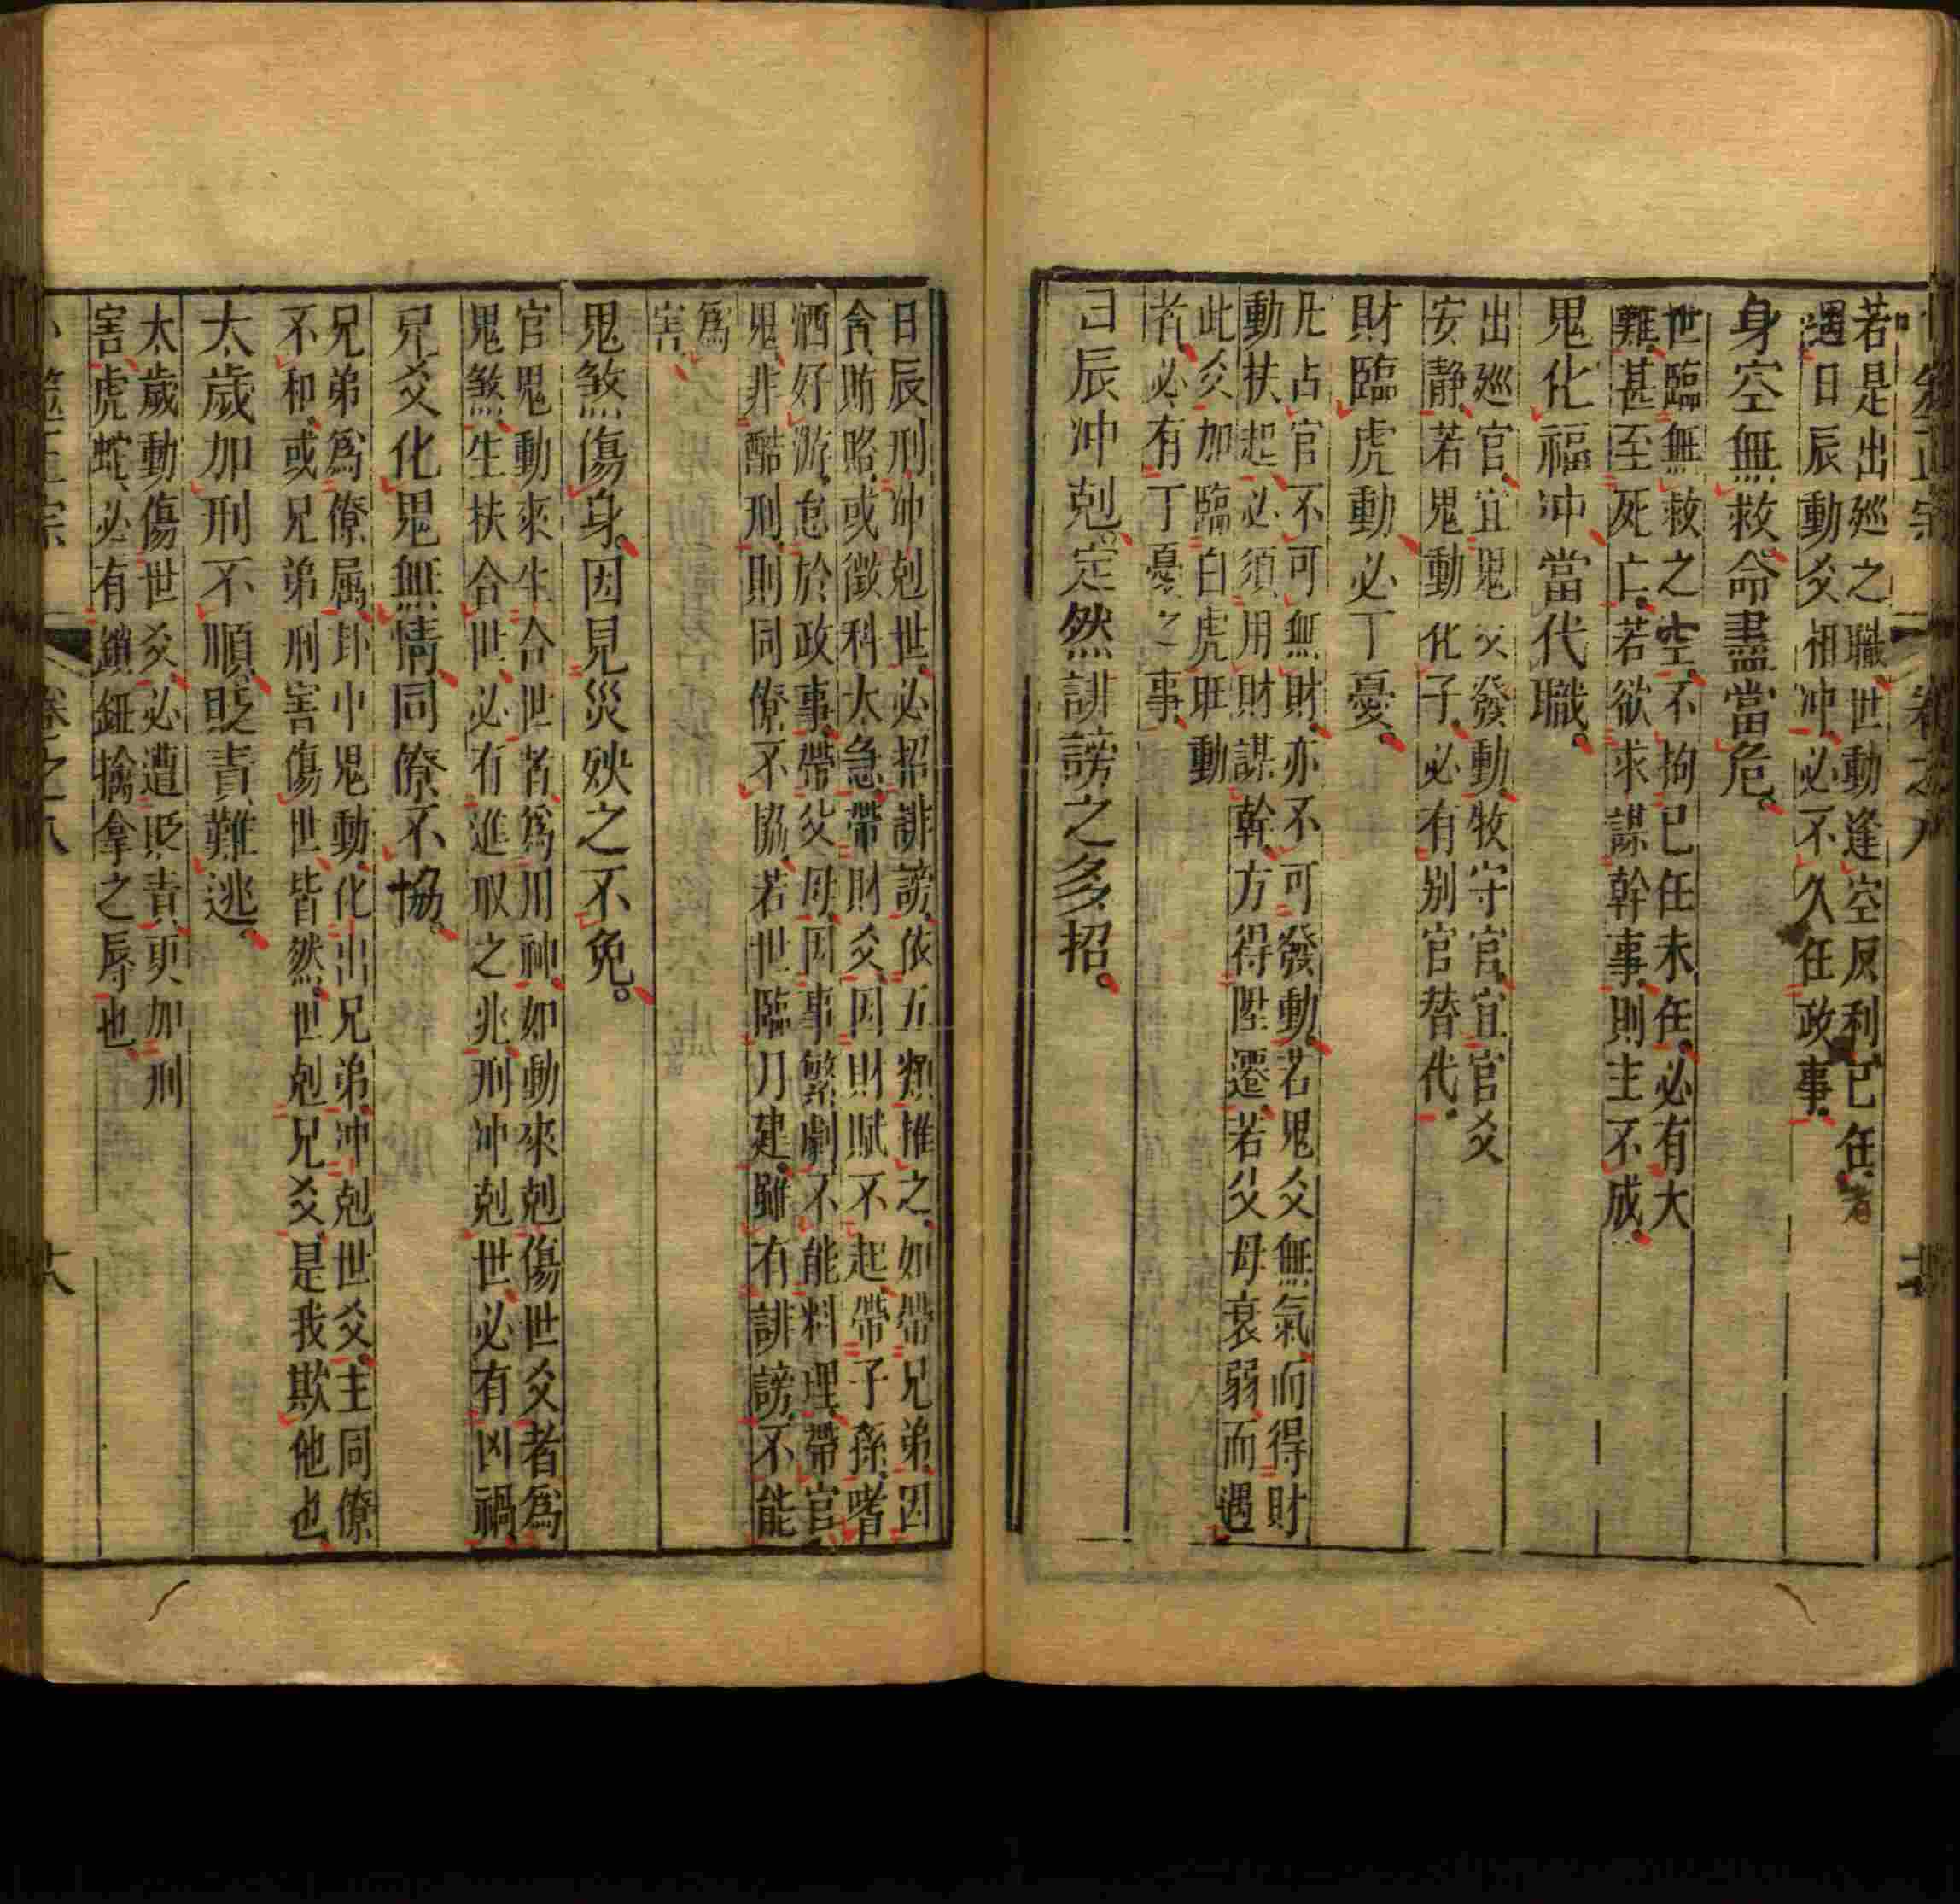 卜筮正宗 卷之八
若是出廵之職世動逢空反利已任者
遇日辰動爻相冲必不久任政事
身空無救命盡當危
世臨無救之空不拘已任未任必有大
難甚至死亡若欲求謀幹事則主不成
鬼化福冲當代職
出廵官宜鬼爻發動牧守官宜官爻
安静若鬼動化子必有别官替代
財臨虎動必丁憂
凡占官不可無財亦不可發動若鬼爻無氣而得財
動扶起必須用財謀幹方得陞遷若父母衰弱而遇
此爻加臨白虎旺動
者必有丁憂之事
日辰冲剋定然誹謗之多招
日辰刑冲剋世必招誹謗依五類推之如帶兄弟因
貪賄賂或徵科太急帶財爻因財賦不起帶子孫嗜
酒好游怠於政事帶父母因事繁劇不能料理帶官
鬼非酷刑則同僚不協若世臨月建雖有誹謗不能
爲
害
鬼煞傷身因見災殃之不免
官鬼動來生合世者爲用神如動來剋傷世爻者爲
鬼煞生扶合世必有進取之兆刑冲剋世必有凶禍
兄爻化鬼無情同僚不協
兄弟爲僚属卦中鬼動化出兄弟冲剋世爻主同僚
不和或兄弟刑害傷世皆然世剋兄爻是我欺他也
太歲加刑不順貶責難逃
太歲動傷世爻必遭貶責更加刑
害虎蛇必有鎖鈕擒拿之辱也
卜筮正宗 卷之八 十八